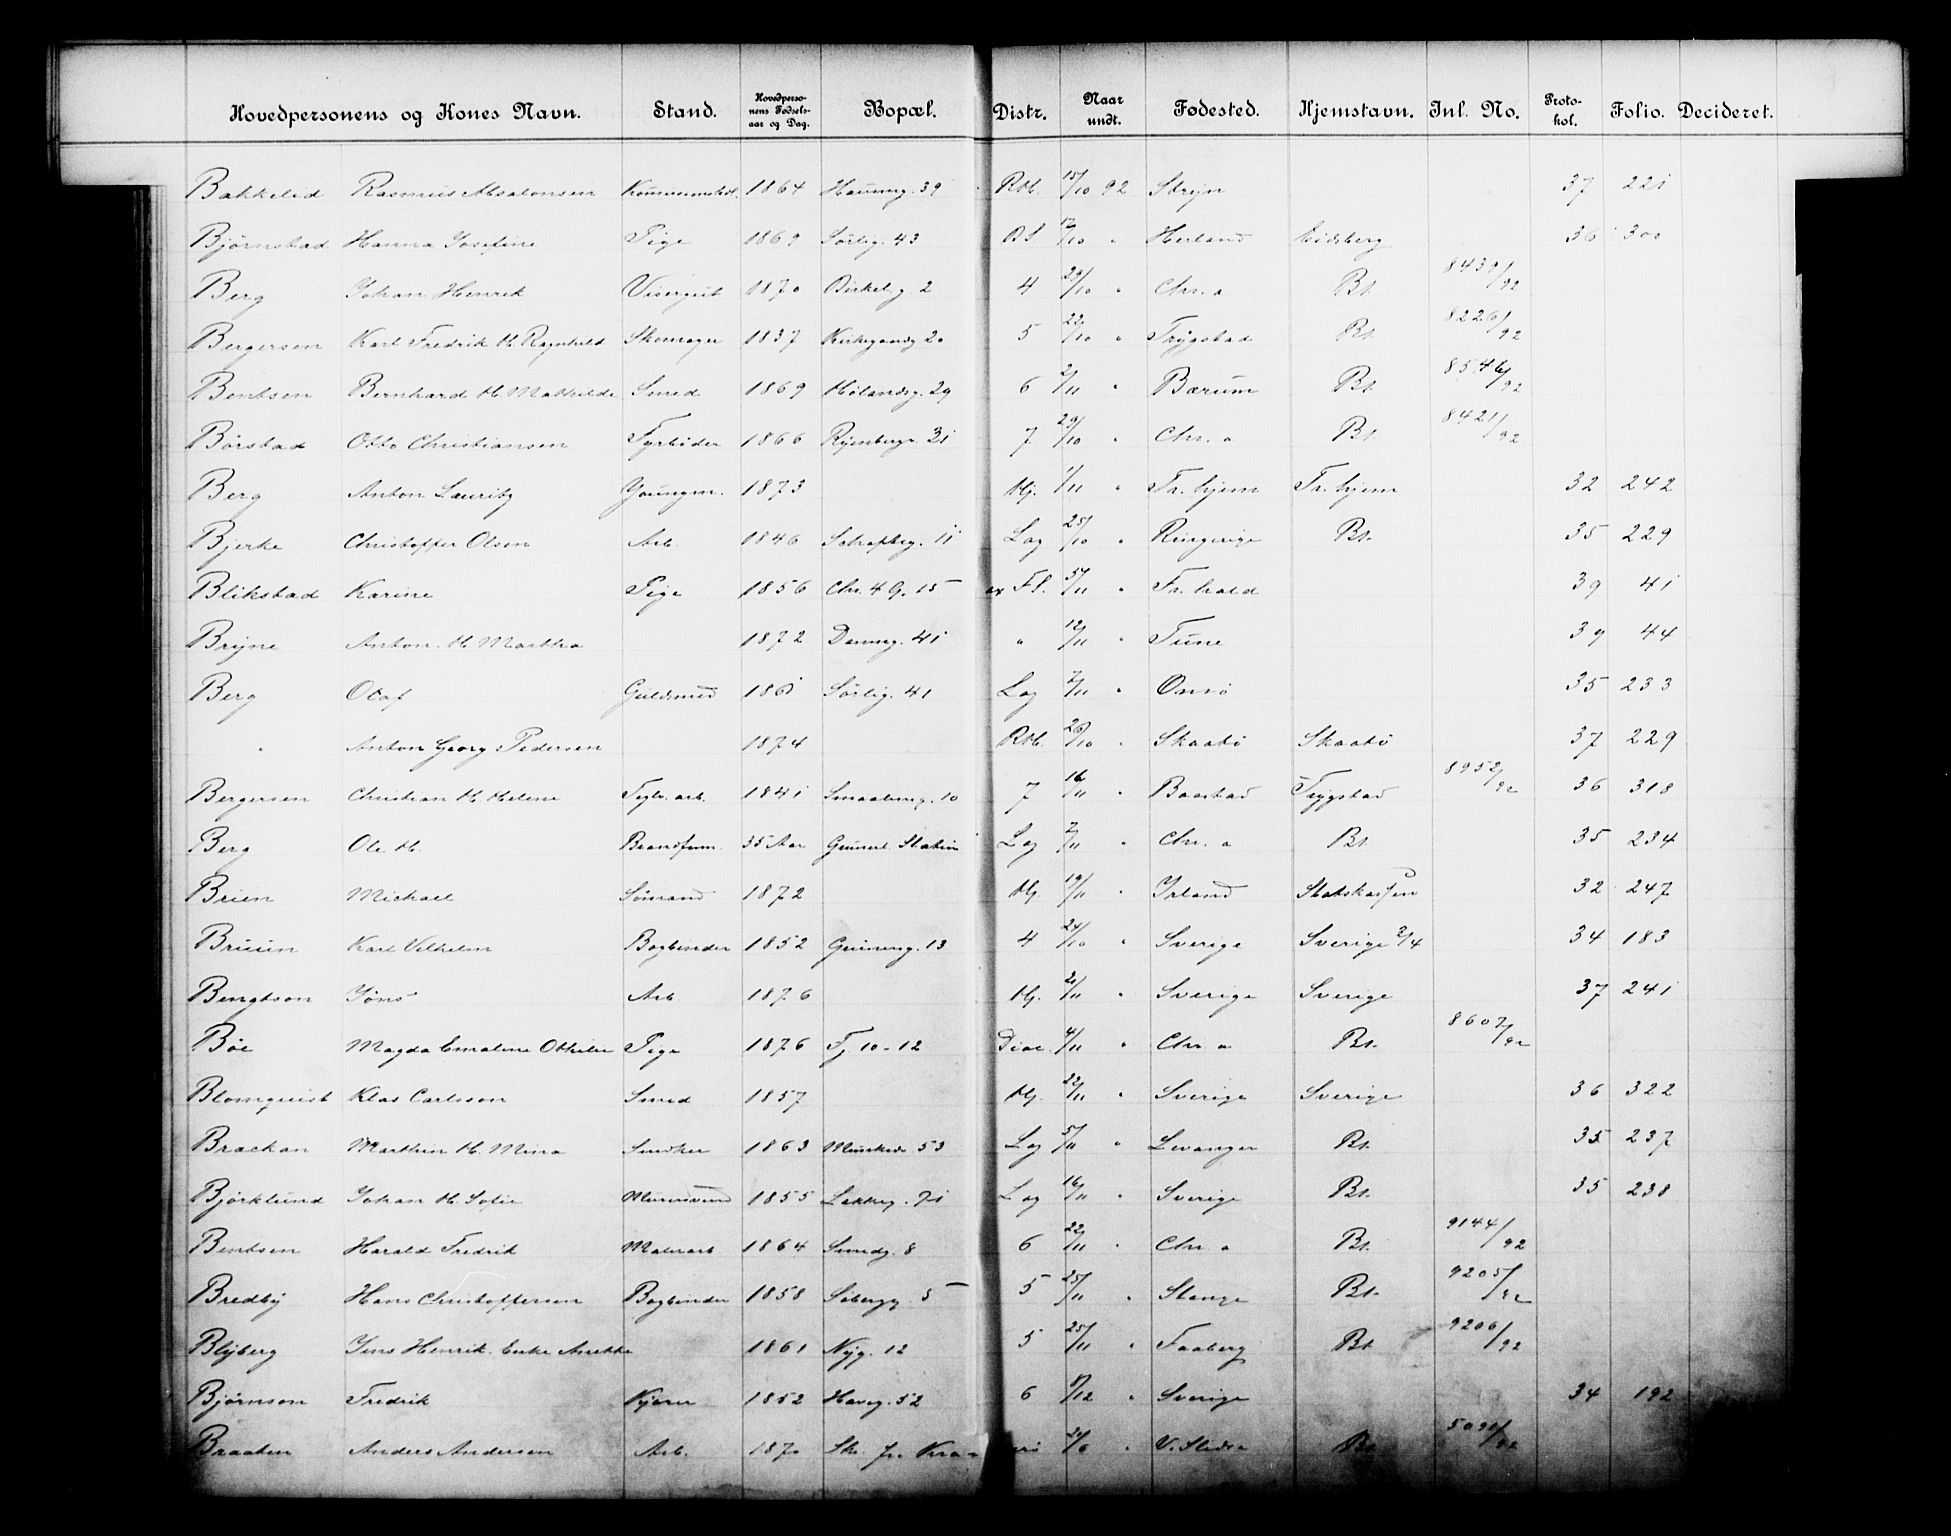 Hovedpersonens og Kones Navn. Stand. Hovedpersonens Fødselsaar og Dag. Bopæl. Distr. Naar undt. Fødested. Hjemstavn. Inl. No. Protokol. Folio. Decideret.
Bakkelid Rasmus Absalonsen 1864 Hausmg. 39 RM. 15/10 92 Stryn 37 221
Bjørnstad Hanna Josefine Pige 1869 Sørlig. 43 12/10 " Herland Eidsberg 36 300
Berg Johan Henrik Visergut 1870 Birkelg. 2 4 29/10 " Chr. a Bt. 8439/92
Bergersen Karl Fredrik M. Ragnhild Skomager 1837 Kirkegaardg 20 5 22/10 " Trygstad Bt. 8226/92
Bentsen Bernhard M. Mathilde Smed 1869 Hølandsg. 29 6 2/11 " Bærum Bt. 8546/92
Børstad Otto Christiansen Fyrbøder 1866 Ryenbergv. 31 7 29/10 " Chr. a Bt. 8421/92
Berg Anton Lauritz Youngm. 1873 Hj. 1/11 " Tr. hjem Tr. hjem 32 242
Bjerke Christoffer Olsen Arb. 1846 Schaftlg. 11 Lag 25/10 " Ringerige Bt. 35 229
Blikstad Karine Pige 1856 Chr. 4 G. 15 Fl. /11 " Fr. hald 39 41
Bryne Anton. M. Martha 1872 Damng. 41 " 12/11 " Tune 39 44
Berg Olaf Guldsmed 1861 Sørlig. 41 Lag 2/11 " Onsø 35 233
" Anton Georg Pedersen 1874 RM. 26/10 " Skaatø Skaatø 37 229
Bergersen Christian M. Helene Teglv. arb. 1841 Smaaleneng. 10 7 16/11 " Baastad Trygstad 8952/92 36 318
Berg Ole M. Brandform. 35 Aar Grünerl. Station Lag 2/11 " Chr. a Bt. 35 234
Brien Michael Sømand 1872 Hj. 19/11 " Irland Statskassen 32 247
Bruun Karl Vilhelm Bogbinder 1852 Grünerg. 13 4 24/10 " Sverige Sverige 3/4 34 183
Bengtson Jøns Arb. 1876 Hj. 2/11 " Sverige Sverige 37 241
Bøe Magda Emaline Othilie Pige 1876 Tj 10-12 Diac. 4/11 " Chr. a Bt. 8607/92
Blomquist Klas Carlsson Smed 1857 Hj. 22/11 " Sverige Sverige 36 322
Brackan Marthin M. Mina Snedker 1863 Munkedv 53 Lag 5/11 " Levanger Bt. 35 237
Bjørklund Johan M. Sofie Murersvend 1855 Lakkeg. 71 Lag 16/11 " Sverige Bt. 35 238
Bentsen Harald Fredrik Malerarb 1864 Smedg. 8 6 22/11 " Chr. a Bt. 9144/92
Bredby Hans Christoffersen Bogbinder 1858 5 5 25/11 " Stange Bt. 9205/92
Blyberg Jens Henrik. Enke Anekke 1861 Nyg. 12 5 25/11 " Faaberg Bt 9206/92
Bjørnson Fredrik Kjører 1852 Haveg. 52 6 /12 " Sverige 34 192
Braaten Anders Andersen Arb. 1870 Sk. fr. /6 " V. Slidre Bt